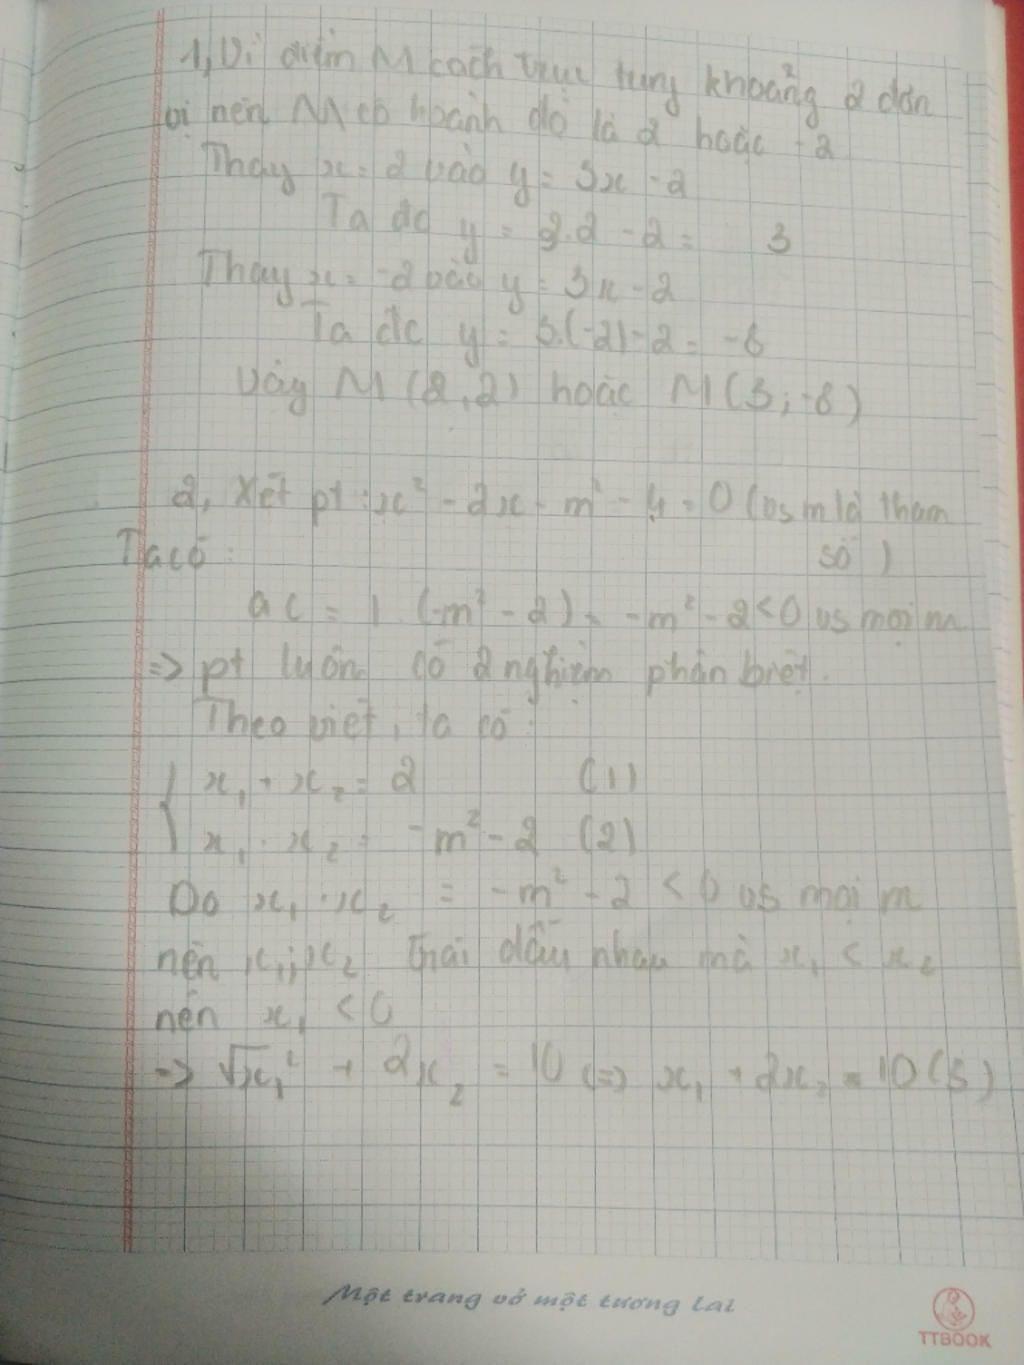 1, Vì điểm M cách trục tung khoảng 2 đơn
vị nên M có hoành độ là 2 hoặc -2
Thay x = 2 vào y = 3x - 2
Ta đc y = 2.2 - 2 = 3
Thay x = -2 vào y = 3x - 2
Ta đc y = 3.(-2) - 2 = -6
Vậy M (2, 2) hoặc M (3; -6)
2, Xét pt : x² - 2x - m² - 4 = 0 (vs m là tham
số)
Ta có :
ac = 1 (-m² - 2) = -m² - 2 < 0 vs mọi m
=> pt luôn có 2 nghiệm phân biệt.
Theo viet, ta có :
x₁ + x₂ = 2 (1)
x₁ . x₂ = -m² - 2 (2)
Do x₁ . x₂ = -m² - 2 < 0 vs mọi m
nên x₁; x₂ trái dấu nhau mà x₁ < x₂
nên x₁ < 0
=> √x₁² + 2x₂ = 10 (=> x₁ + 2x₂ = 10 (3)
Một trang vở một tương lai
TTBOOK